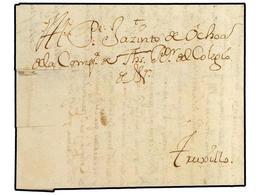 Al Pe. Jazinto de Ochoa
de la Compa. de Jhs. Rr. del Colegio
de
Truxillo.